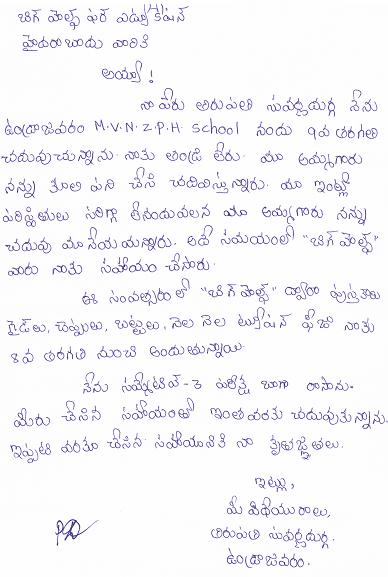 బిగ్ హెల్ప్ ఫర్ ఎడ్యుకేషన్
హైదరాబాదు వారికి
అయ్యా !
నా పేరు తిరుపతి సువర్ణదుర్గ నేను
ఉండ్రాజవరం M.V.N.Z.P.H School నందు 9వ తరగతి
చదువుచున్నాను. నాకు తండ్రి లేరు. మా అమ్మగారు
నన్ను కూలి పని చేసి చదివిస్తున్నారు. మా ఇంట్లో
పరిస్థితులు సరిగ్గా లేనందువలన మా అమ్మగారు నన్ను
చదువు మానేయమన్నారు. అదే సమయంలో "బిగ్ హెల్ప్"
వారు నాకు సహాయం చేసారు.
ఈ సంవత్సరంలో "బిగ్ హెల్ప్" ద్వారా పుస్తకాలు
గైడ్లు, చెప్పులు, బట్టలు, నెల నెల ట్యూషన్ ఫీజు నాకు
8వ తరగతి నుంచి అందుతున్నాయి.
నేను సమ్మేటివ్-3 పరీక్ష బాగా రాసాను.
మీరు చేసిన సహాయంతో ఇంతవరకు చదువుతున్నాను.
ఇప్పటి వరకూ చేసిన సహాయానికి నా కృతజ్ఞతలు.
ఇట్లు,
మీ విధేయురాలు,
తిరుపతి సువర్ణదుర్గ.
ఉండ్రాజవరం.